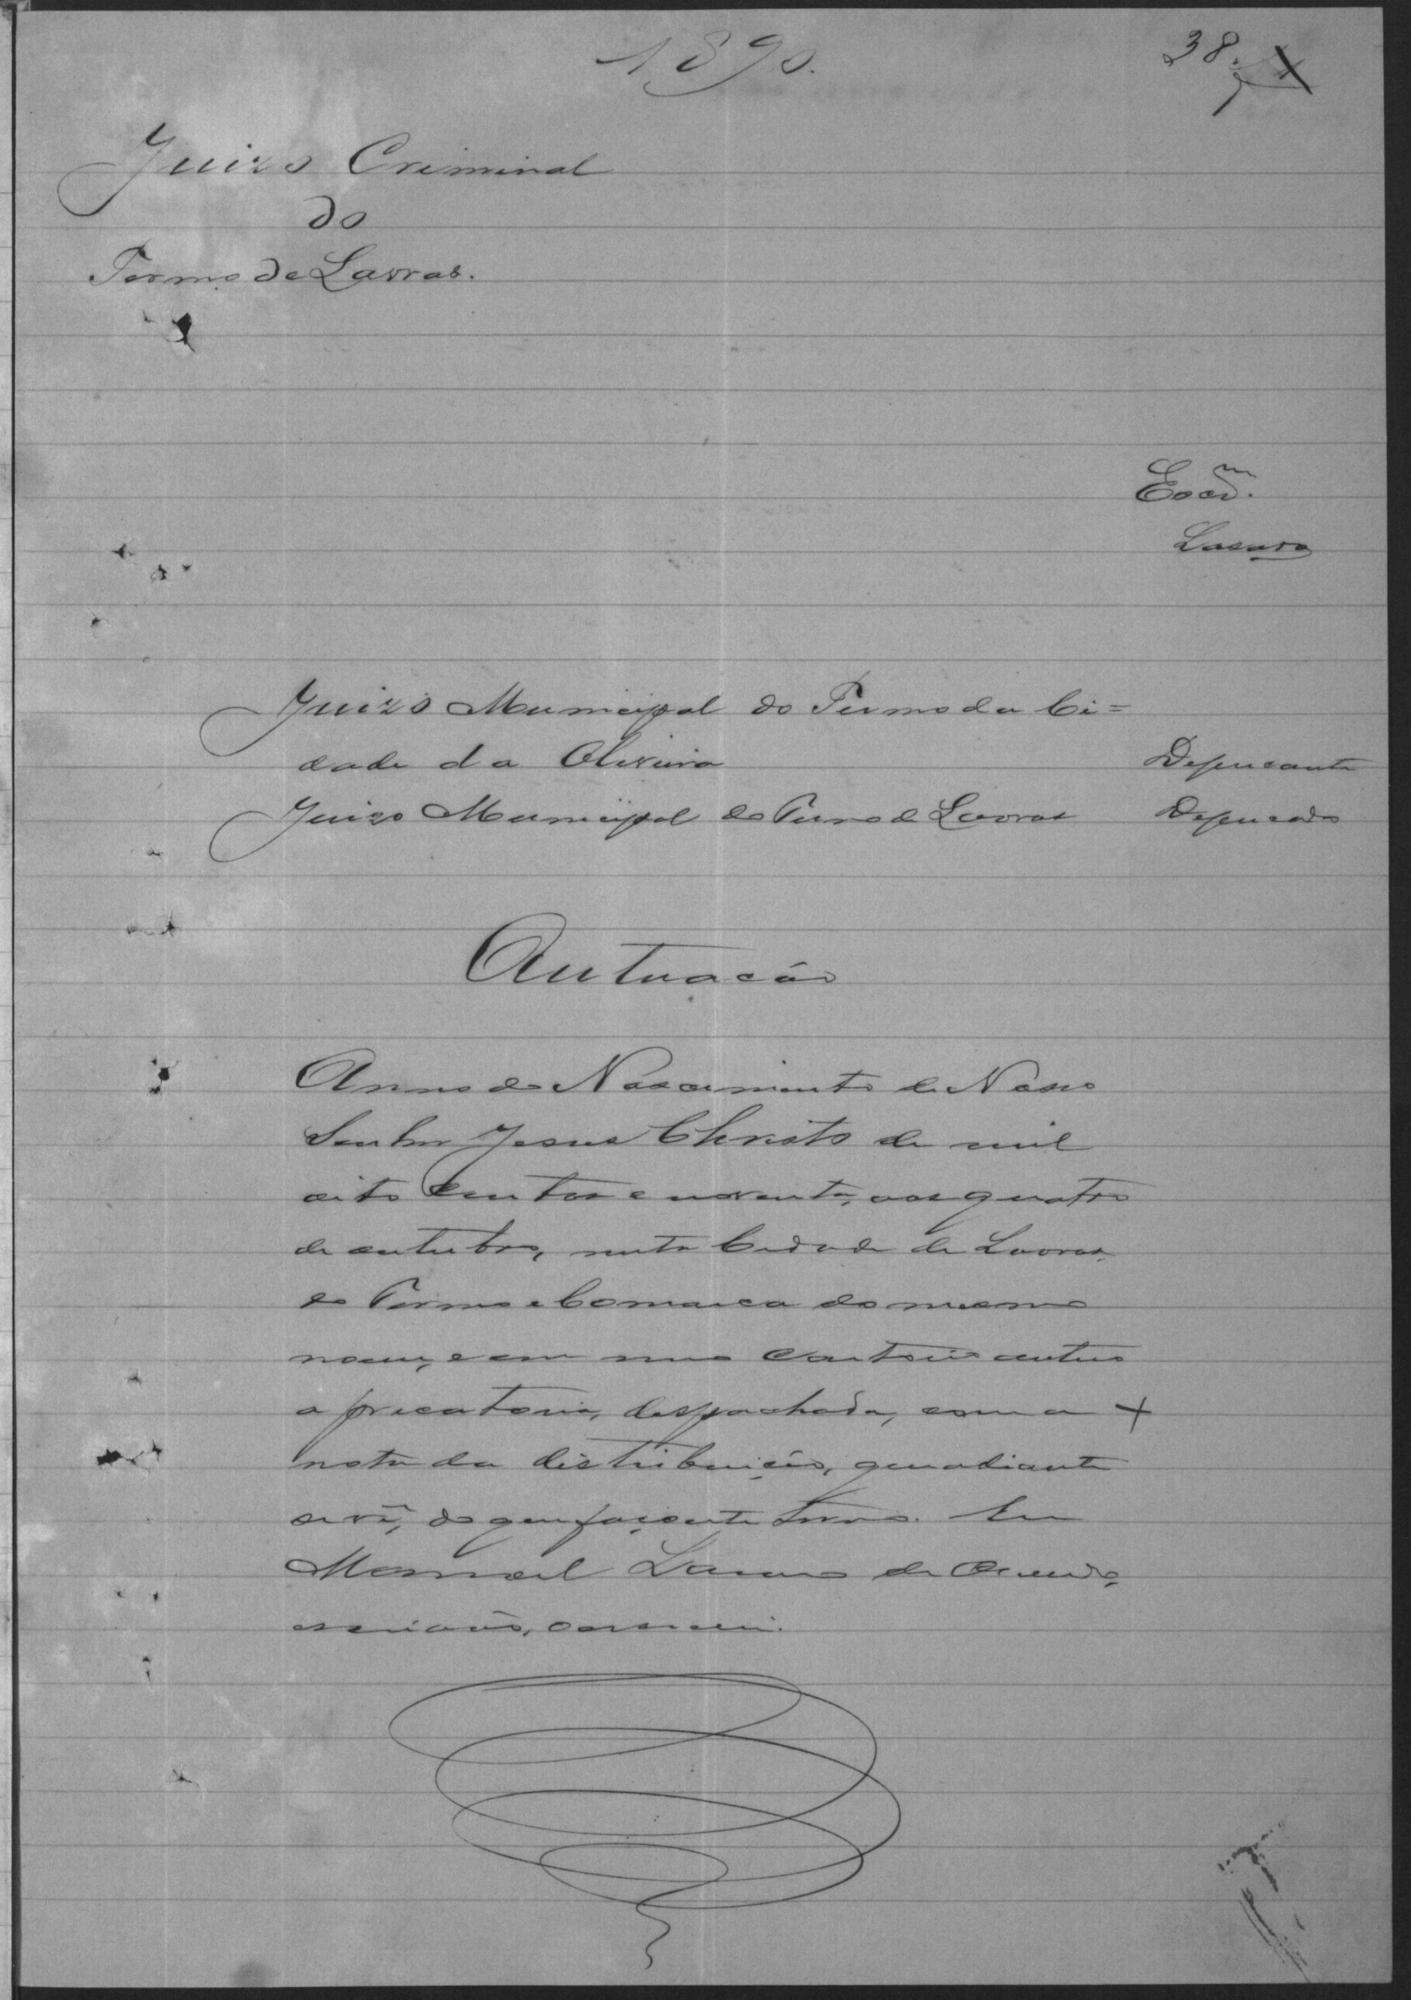 1890.
38.
Juizo Criminal
do
Termo de Lavras.
Escr.m
Lasaro
Juizo Municipal do Termo da Ci=
dade da Oliveira Deprecante
Juizo Municipal do Termo de Lavras Deprecado
Autuacão
Anno do Nascimento de Nosso
Senhor Jesus Christo de mil
oito centos e noventa, aos quatro
de outubro, nesta Cidade de Lavras,
do Termo e Comarca do mesmo
nome, e em meu Cartorio autuo
a precatoria, despachada, com a
nota da distribuição, que adiante
se vê, do que faço este termo. Eu
Manoel Lasaro de
escrivão, o escrevi.